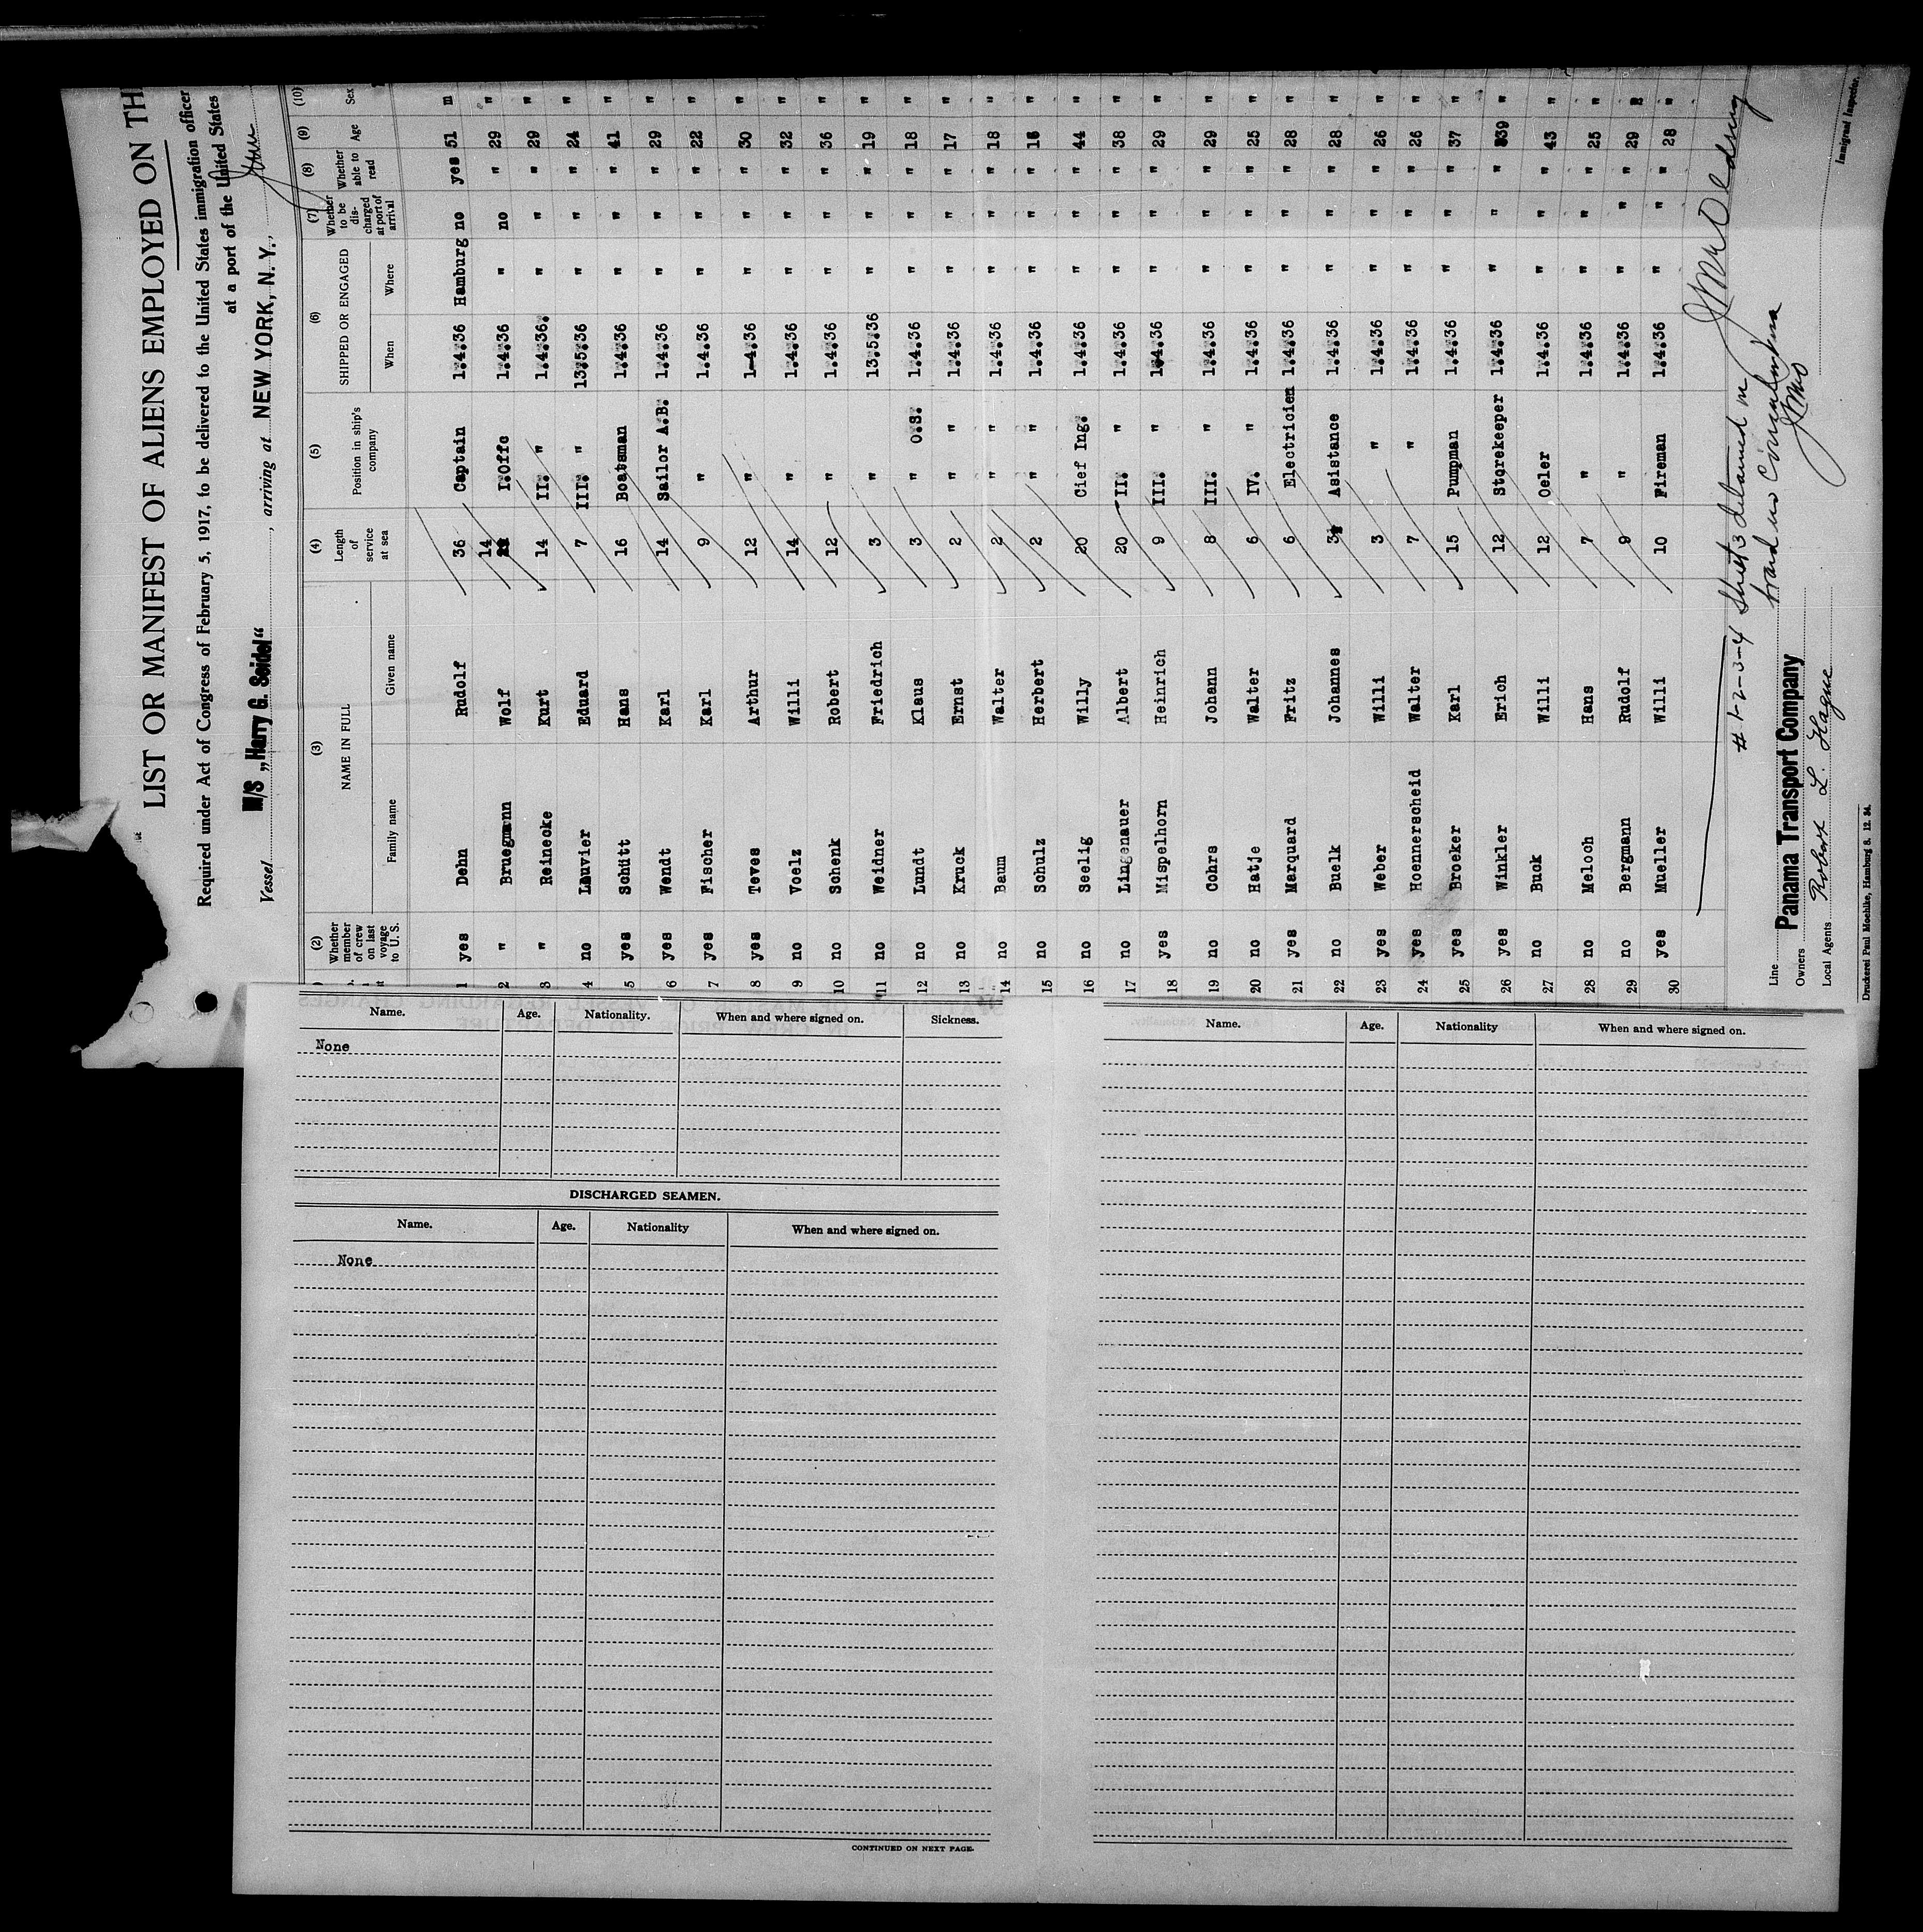 LIST OR MANIFEST OF ALIENS EMPLOYED ON TH
Required under Act of Congress of February 5, 1917, to be delivered to the United States immigration officer
at a port of the United States
Vessel M/S „Harry G. Seidel“, arriving at NEW YORK, N. Y.,
(2) (3) (4) (5) (6) (7) (8) (9) (10)
Whether member of crew on last voyage to U. S. NAME IN FULL Length of service at sea Position in ship's company SHIPPED OR ENGAGED Whether to be discharged at port of arrival Whether able to read Age Sex
Family name Given name When Where
1 yes Dehn Rudolf 36 Captain 1.4.36 Hamburg no yes 51 m
2 " Bruegmann Wolf 14 I.Offc 1.4.36 " no " 29 "
3 " Reinecke Kurt 14 II. " 1.4.36. " " " 29 "
4 no Lauvier Eduard 7 III. " 13.5.36 " " " 24 "
5 yes Schütt Hans 16 Boatsman 1.4.36 " " " 41 "
6 yes Wendt Karl 14 Sailor A.B. 1.4.36 " " " 29 "
7 yes Fischer Karl 9 " 1.4.36 " " " 22 "
8 yes Teves Arthur 12 " 1-4.36 " " " 30 "
9 no Voelz Willi 14 " 1.4.36 " " " 32 "
10 no Schenk Robert 12 " 1.4.36 " " " 36 "
11 no Weidner Friedrich 3 " 13.5.36 " " " 19 "
12 no Lundt Klaus 3 " O.S. 1.4.36 " " " 18 "
13 no Kruck Ernst 2 " " 1.4.36 " " " 17 "
14 no Baum Walter 2 " " 1.4.36 " " " 18 "
15 no Schulz Herbert 2 " " 1.4.36 " " " "
16 no Seelig Willy 20 Cief Ing. 1.4.36 " " " 44 "
17 no Lingenauer Albert 20 II. " 1.4.36 " " " 38 "
18 yes Mispelhorn Heinrich 9 III. " 1.4.36 " " " 29 "
19 no Cohrs Johann 8 III. " 1.4.36 " " " 29 "
20 no Hatje Walter 6 IV. " 1.4.36 " " " 25 "
21 yes Marquard Fritz 6 Electricien 1.4.36 " " " 28 "
22 no Buelk Johannes Asistance 1.4.36 " " " 28 "
23 yes Weber Willi 3 " 1.4.36 " " " 26 "
24 yes Hoennerscheid Walter 7 " 1.4.36 " " " 26 "
25 yes Broeker Karl 15 Pumpman 1.4.36 " " " 37 "
26 yes Winkler Erich 12 Storekeeper 1.4.36 " " " 39 "
27 no Buck Willi 12 Oeler 1.4.36 " " " 43 "
28 no Meloch Hans 7 " 1.4.36 " " " 25 "
29 no Bergmann Rudolf 9 " 1.4.36 " " " 29 "
30 yes Mueller Willi 10 Fireman 1.4.36 " " " 28 "
# 1-2-3-4 Sheet 3 detained on
board
Line Panama Transport Company
Owners
Local Agents Robert L. Hague
Immigrant Inspector.
Druckerei Paul Moehlke, Hamburg 8. 12. 34.
Name. Age. Nationality. When and where signed on. Sickness.
None
DISCHARGED SEAMEN.
Name. Age. Nationality When and where signed on.
None
CONTINUED ON NEXT PAGE.
Name. Age. Nationality When and where signed on.